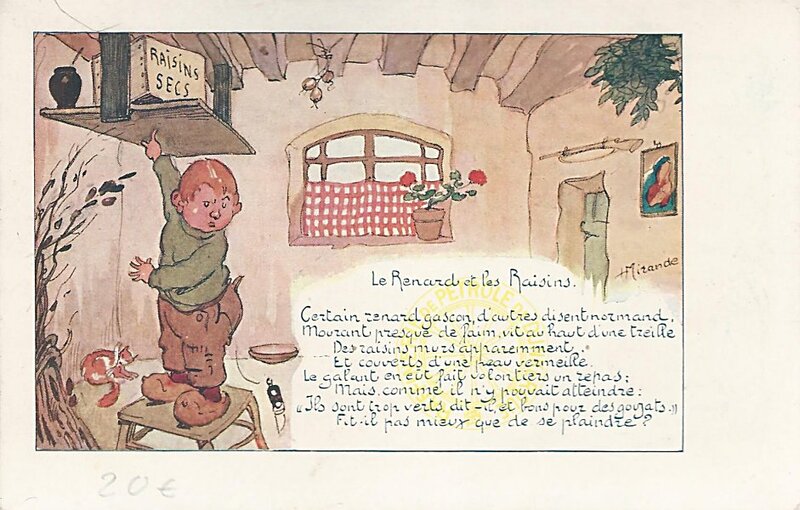 RAISINS
SECS
HMirande
Le Renard et les Raisins.
Certain renard gascon, d'autres disent normand,
Mourant presque de faim, vit au haut d'une treille
Des raisins murs apparemment,
Et couverts d'une peau vermeille.
Le galant en eût fait volontiers un repas;
Mais, comme il n'y pouvait atteindre:
«Ils sont trop verts, dit-il, et bons pour des goujats.»
Fit-il pas mieux que de se plaindre?
PETROLE
20€